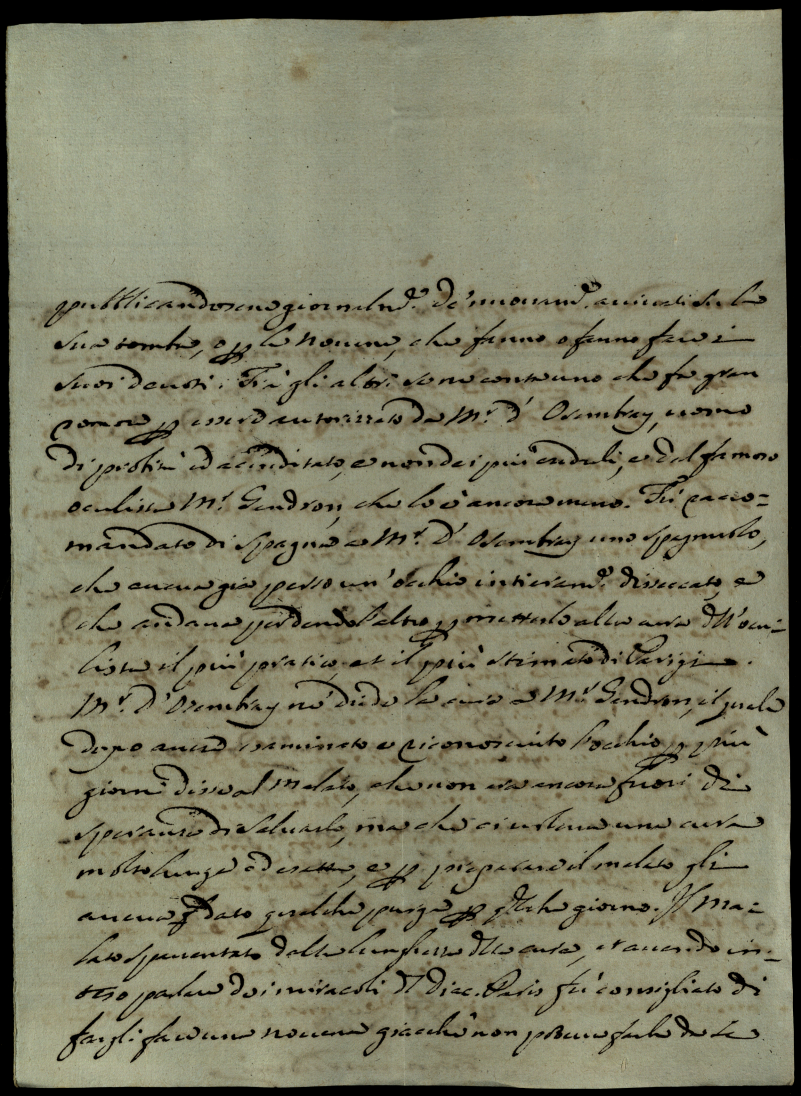 pubblicandosene giornalm.e de' nuovam.e avvenuti su la
sua tomba, e p le novene, che fanno o fanno fare i
suoi devoti. Frà gli altri se ne conta uno che fa gran
romore p esser autorizzato da M.r d' Osembray, uomo
di probità ed accreditato, e non dei più creduli, e dal famoso
oculista M.r Gendron, che lo è ancora meno. Fù racco=
mandato di Spagna a M.r d' Osembray uno spagnuolo,
che aveva già perso un' occhio intieram.e disseccato, e
che andava perdendo l'altro p metterlo alla cura dell'ocu=
lista il più pratico, et il più stimato di Parigi.
M.r d' Osembray ne diede la cura a M.r Gendron, il quale
dopo aver esaminato e riconosciuto l'occhio p più
giorni disse al malato, che non era ancora fuori di
speranza di salvarlo, ma che ci voleva una cura
molto lunga ed esatta, e p preparare il malato gli
aveva dato qualche purga p qualche giorno. Il ma=
lato spaventato dalla lunghezza della cura, et avendo in=
teso parlare dei miracoli del Diac. Paris fù consigliato di
fargli fare una novena giacchè non poteva farla da se